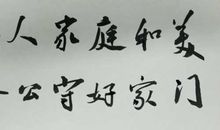 人家庭和美
公守好家门